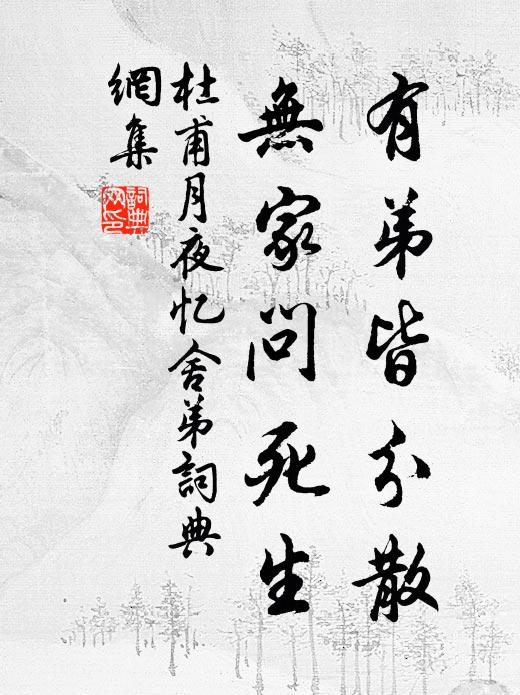 有弟皆分散
無家問死生
杜甫月夜忆舍弟詞典
網集
詞典
网印